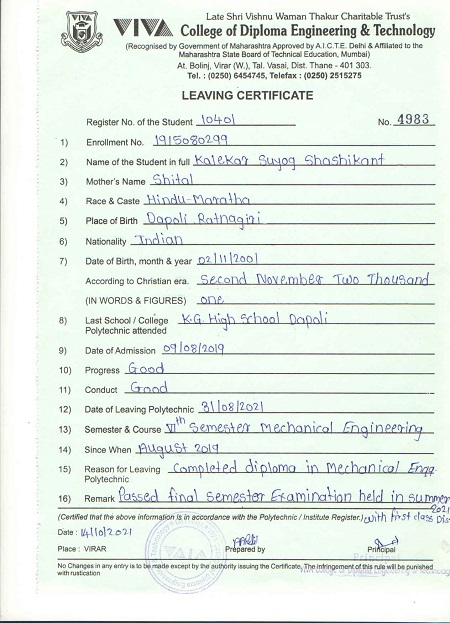 Late Shri Vishnu Waman Thakur Charitable Trust's
VIVA College of Diploma Engineering & Technology
(Recognised by Government of Maharashtra Approved by A.I.C.T.E. Delhi & Affiliated to the
Maharashtra State Board of Technical Education, Mumbai)
At. Bolinj, Virar (W.), Tal. Vasai, Dist. Thane - 401 303.
Tel. : (0250) 6454745, Telefax : (0250) 2515275
LEAVING CERTIFICATE
Register No. of the Student 10401 No. 4983
1) Enrollment No. 1915080299
2) Name of the Student in full Kalekar Suyog Shashikant
3) Mother's Name Shital
4) Race & Caste Hindu-Maratha
5) Place of Birth Dapoli Ratnagiri
6) Nationality Indian
7) Date of Birth, month & year 02/11/2001
According to Christian era. Second November Two Thousand
(IN WORDS & FIGURES) one
8) Last School / College K.G. High School Dapoli
Polytechnic attended
9) Date of Admission 09/08/2019
10) Progress Good
11) Conduct Good
12) Date of Leaving Polytechnic 31/08/2021
13) Semester & Course VIth Semester Mechanical Engineering
14) Since When August 2019
15) Reason for Leaving Completed diploma in Mechanical Engg.
Polytechnic
16) Remark Passed final Semester Examination held in summer
2021
(Certified that the above information is in accordance with the Polytechnic / Institute Register.) with first class Dis
Date : 14/10/2021
Place : VIRAR Prepared by Principal
Principal
VIVA College of Diploma Engineering & Technology
No Changes in any entry is to be made except by the authority issuing the Certificate, The infringement of this rule will be punished
with rustication